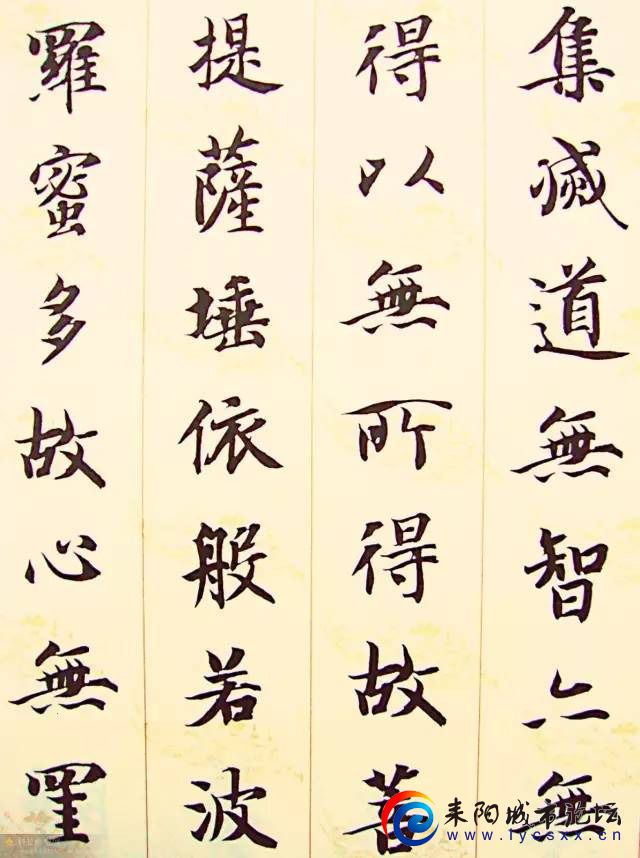 集滅道無智亦無
得以無所得故菩
提薩埵依般若波
羅蜜多故心無罣
耒阳城市论坛
www.lycsxx.cn